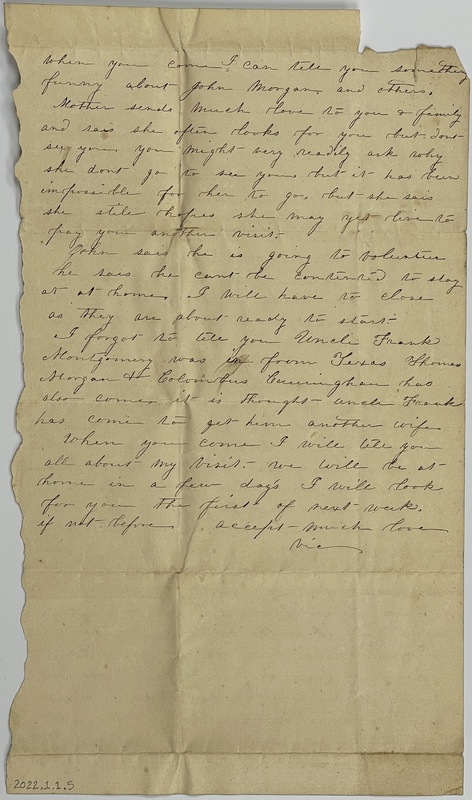 when you come. I can tell you something
funny about John Morgan. and others.
Mother sends much love to you & family
and sais she often looks for you but dont
se you. you might very readily ask why
she dont go to see you. but it has been
impossible for her to go, but she sais
she stile hopes she may yet live to
pay you another visit.
John says he is going to volenteer
he sais he cant be contented to stay
at at home. I will have to close
as they are about ready to start.
I forgot to tell you Uncle Frank
Montgomery was from Texas Thomas
Morgan & Colombus Cuninghan has
also come. it is thought uncle Frank
has come to get him another wife
When you come I will tell you
all about my visit. we will be at
home in a few days I will look
for you the first of next week.
if not before accept much love
Vic
2022.1.1.5